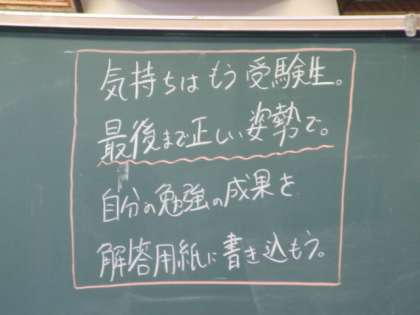 気持ちはもう受験生。
最後まで正しい姿勢で。
自分の勉強の成果を
解答用紙に書き込もう。